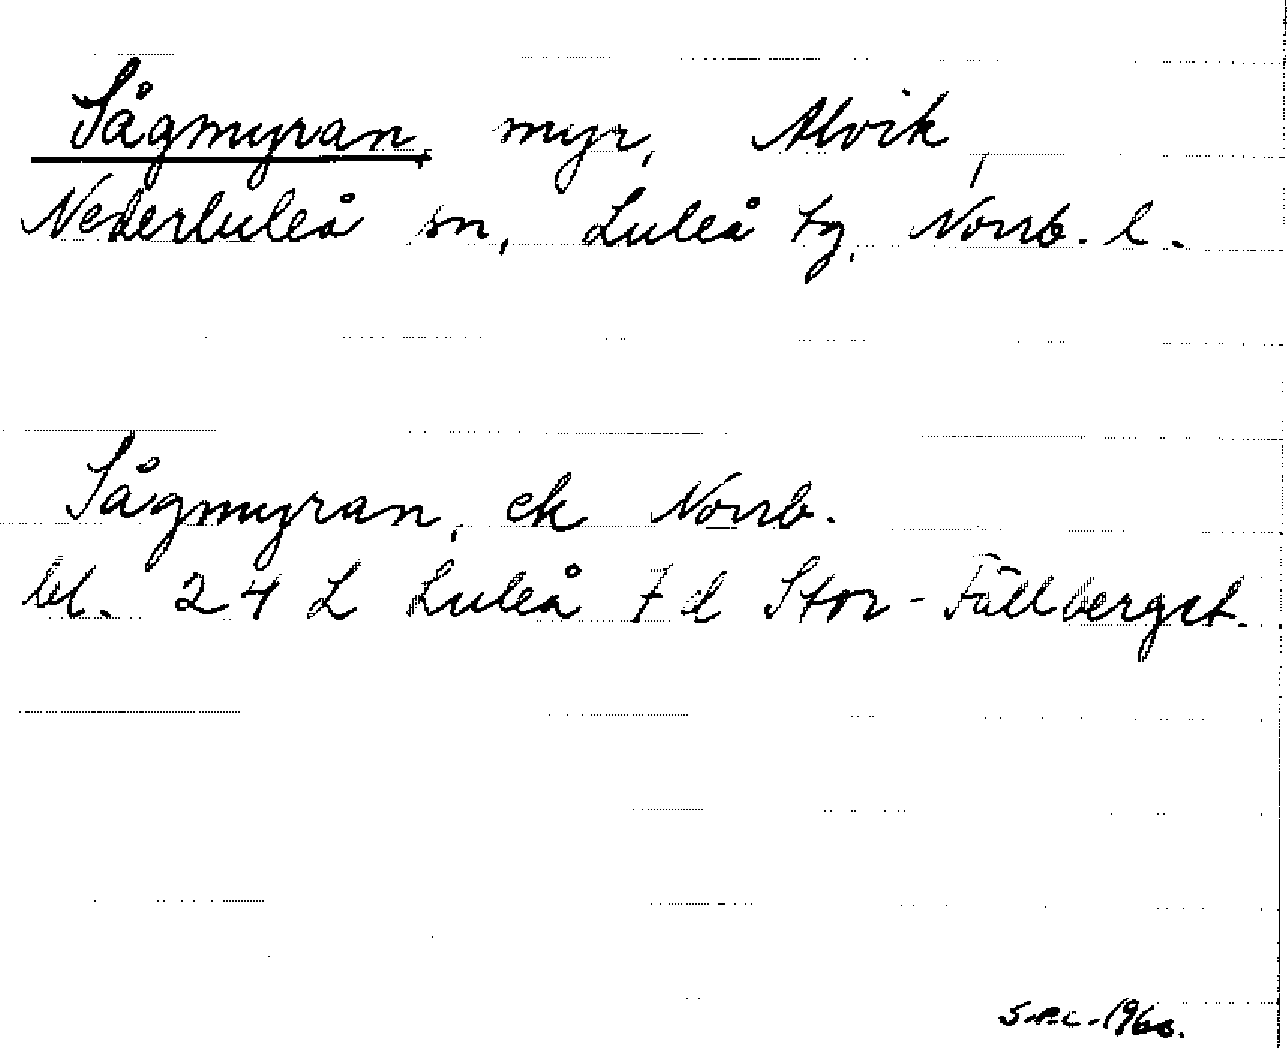 Sågmyran, myr, Alvik,
Nederluleå sn, Luleå tg, Norrb. l.
Sågmyran, ek Norrb.
bl. 24 L Luleå 7 d Stor-Fällberget.